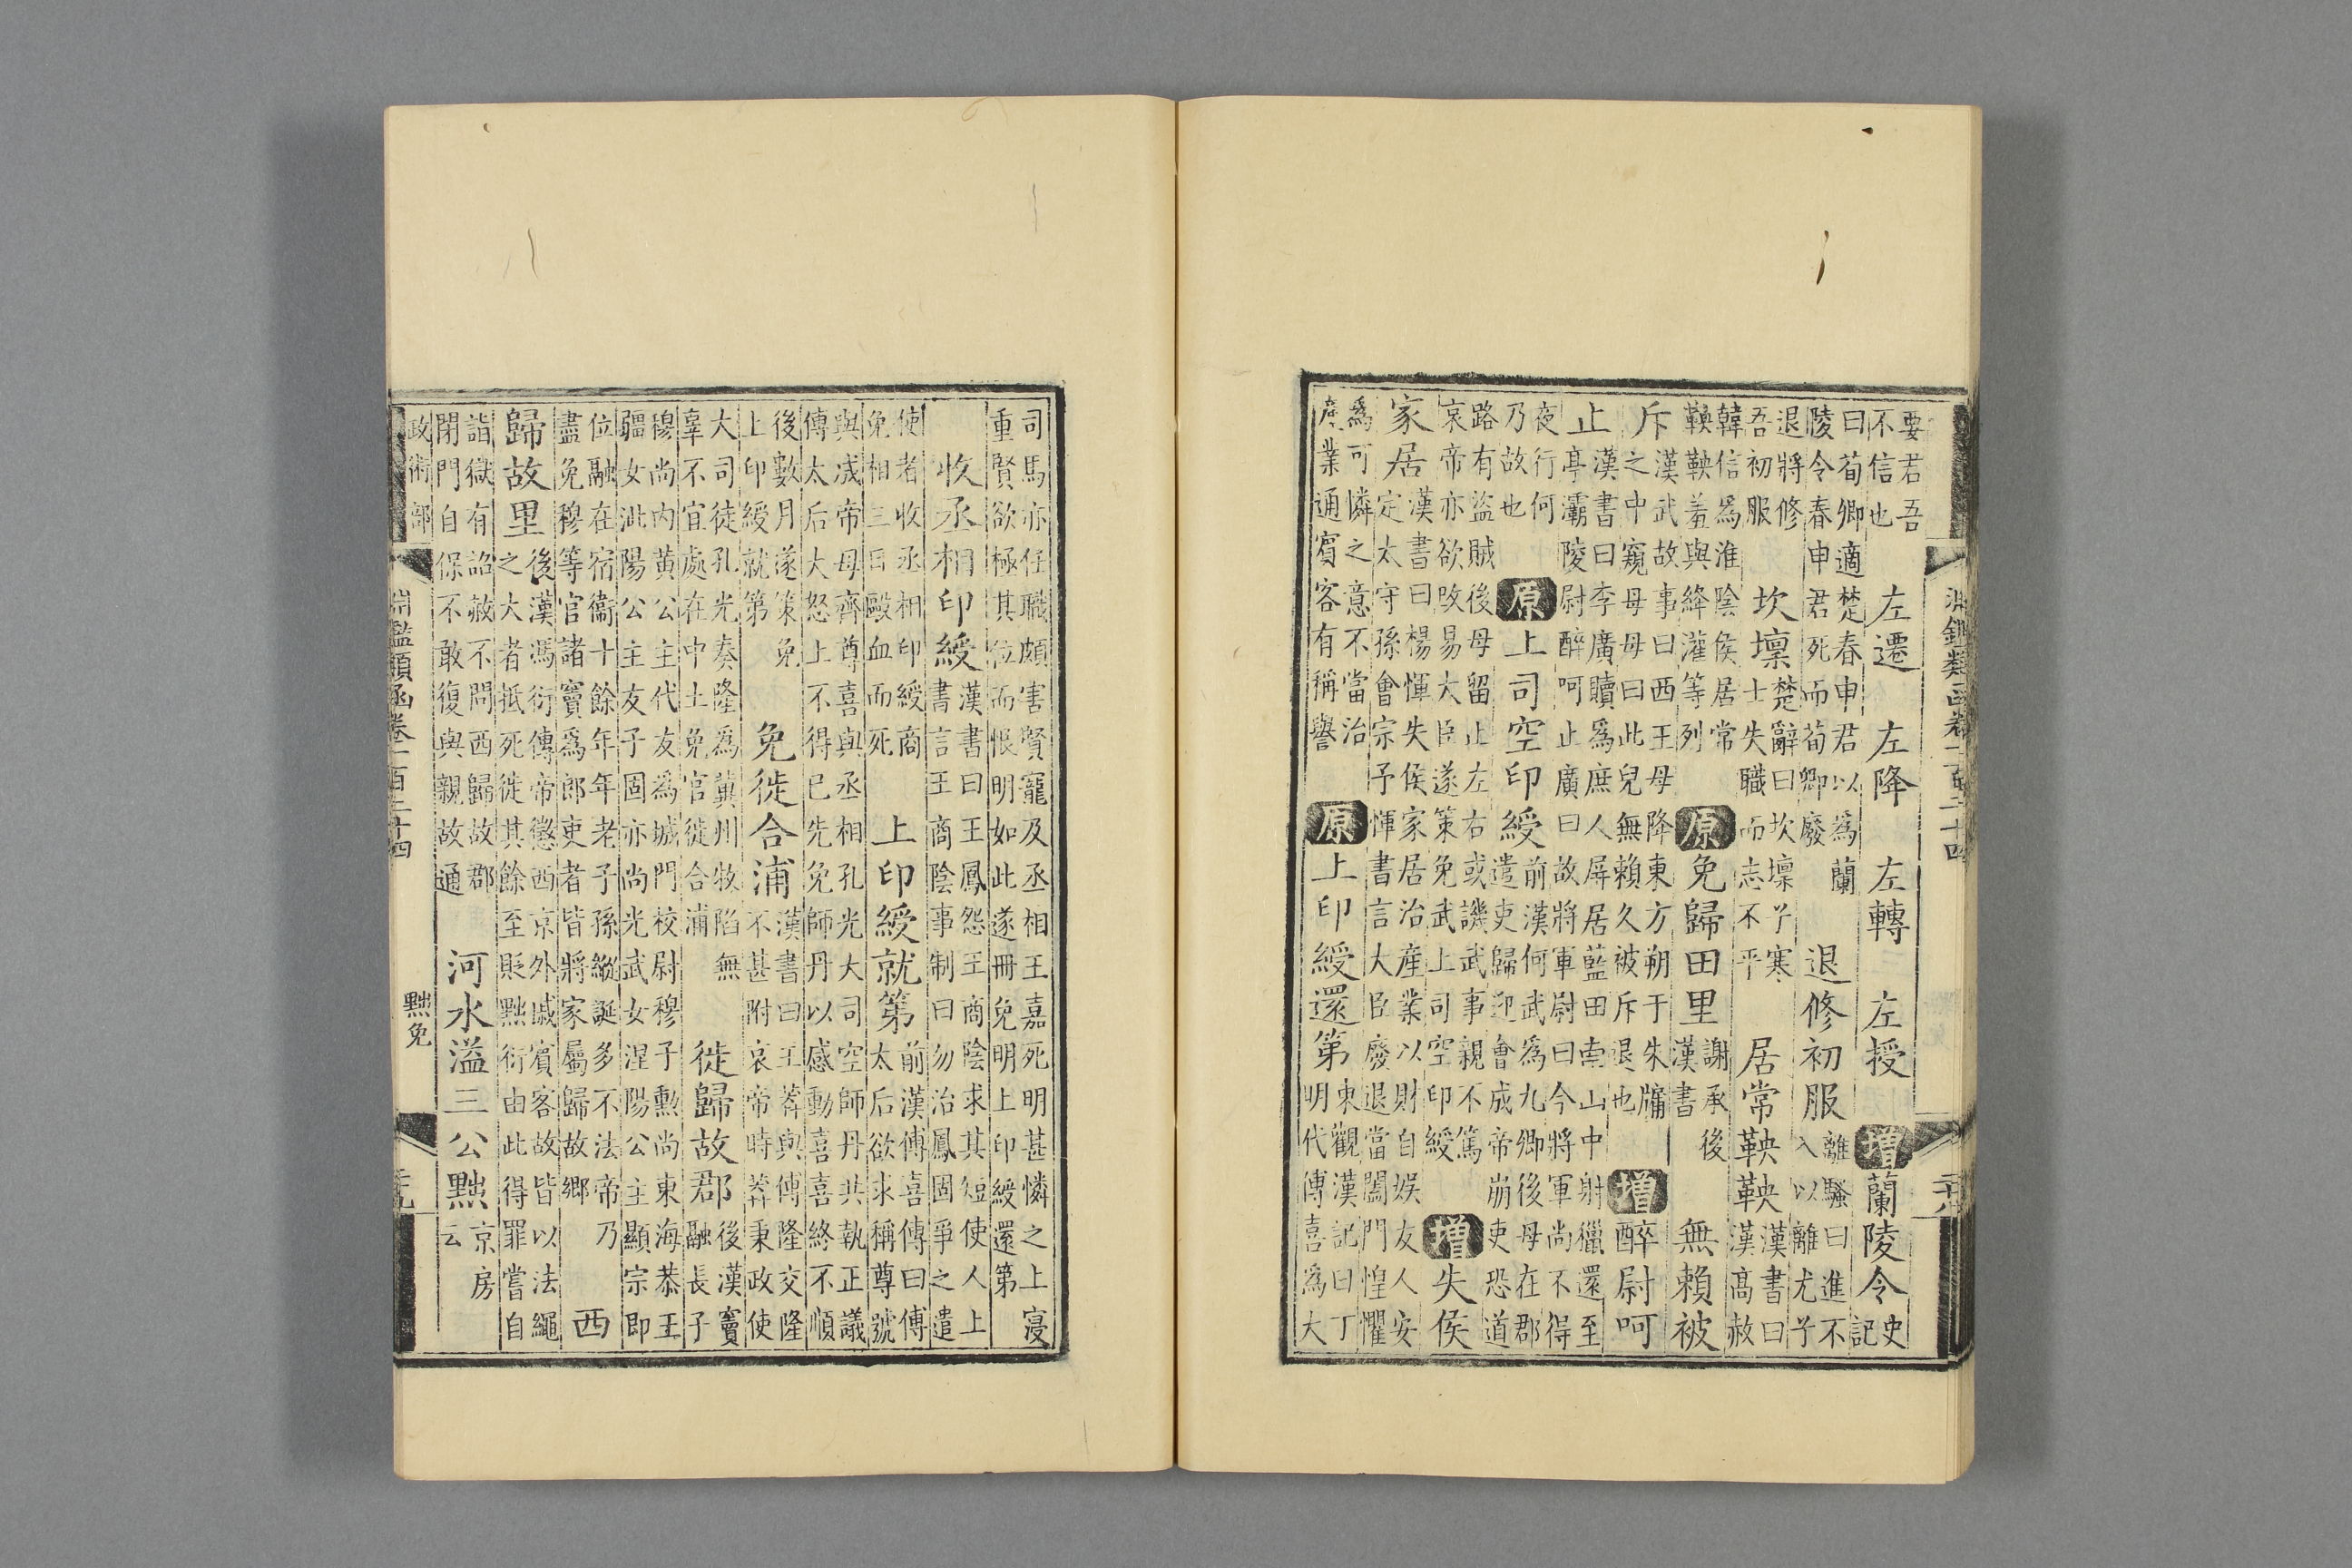 淵鑑類函卷一百二十四 二十八
要君吾
不信也
左遷 左降 左轉 左授 增 蘭陵令
史
記
曰荀卿適楚春申君以為蘭
陵令春申君死而荀卿廢
退修初服
離騷曰進不
入以離尤兮
退將修
吾初服
坎壈
楚辭曰坎壈兮寒
士失職而志不平
居常鞅鞅
漢書曰
漢高赦
韓信為淮陰侯居常
鞅鞅羞與絳灌等列
原 免歸田里
謝承後
漢書
無賴被
斥
漢武故事曰西王母降東方朔于朱牖
之中窺母母曰此兒無賴久被斥退也
增 醉尉呵
止
漢書曰李廣贖為庶人屏居藍田南山中射獵還至
亭灞陵尉醉呵止廣曰故將軍尉曰今將軍尚不得
夜行何
乃故也
原 上司空印綬
前漢何武為九卿後母在郡
遣吏歸迎會成帝崩吏恐道
路有盜賊後母留止左右或譏武事親不篤
哀帝亦欲改易大臣遂策免武上司空印綬
增 失侯
家居
漢書曰楊惲失侯家居治產業以財自娛友人安
定太守孫會宗予惲書言大臣廢退當闔門惶懼
為可憐之意不當治
產業通賓客有稱譽
原 上印綬還第
東觀漢記曰丁
明代傅喜為大
司馬亦任職頗害賢寵及丞相王嘉死明甚憐之上寖
重賢欲極其位而恨明如此遂冊免明上印綬還第
收丞相印綬
漢書曰王鳳怨王商陰求其短使人上
書言王商陰事制曰勿治鳳固爭之遣
使者收丞相印綬商
免相三日毆血而死
上印綬就第
前漢傅喜傳曰傅
太后欲求稱尊號
與成帝母齊尊喜與丞相孔光大司空師丹共執正議
傅太后大怒上不得已先免師丹以感動喜喜終不順
後數月遂策免
上印綬就第
免徙合浦
漢書曰王莽與傅隆交隆
不甚附哀帝時莽秉政使
大司徒孔光奏隆為冀州牧陷無
辜不宜處在中土免官徙合浦
徙歸故郡
後漢竇
融長子
穆尚內黃公主代友為城門校尉穆子勲尚東海恭王
疆女沘陽公主友子固亦尚光武女涅陽公主顯宗即
位融在宿衞十餘年年老子孫縱誕多不法帝乃
盡免穆等官諸竇為郎吏者皆將家屬歸故鄉
西
歸故里
後漢馮衍傳帝懲西京外戚賓客故皆以法繩
之大者抵死徙其餘至貶黜衍由此得罪嘗自
詣獄有詔赦不問西歸故郡
閉門自保不敢復與親故通
河水溢三公黜
京房
云
政術部 淵鑑類函卷一百二十四 黜免 二十九